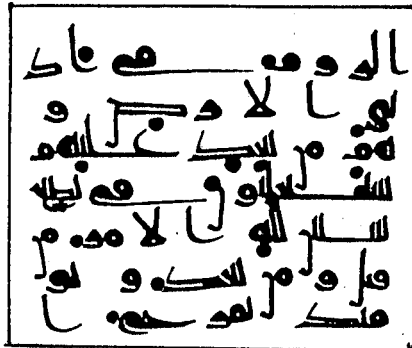 الروم في اد
نى الارض و
هم من بعد غلبهم
سيغلبون في بضع
سنين لله الامر من
قبل ومن بعد ويو
مئذ يفرح ا